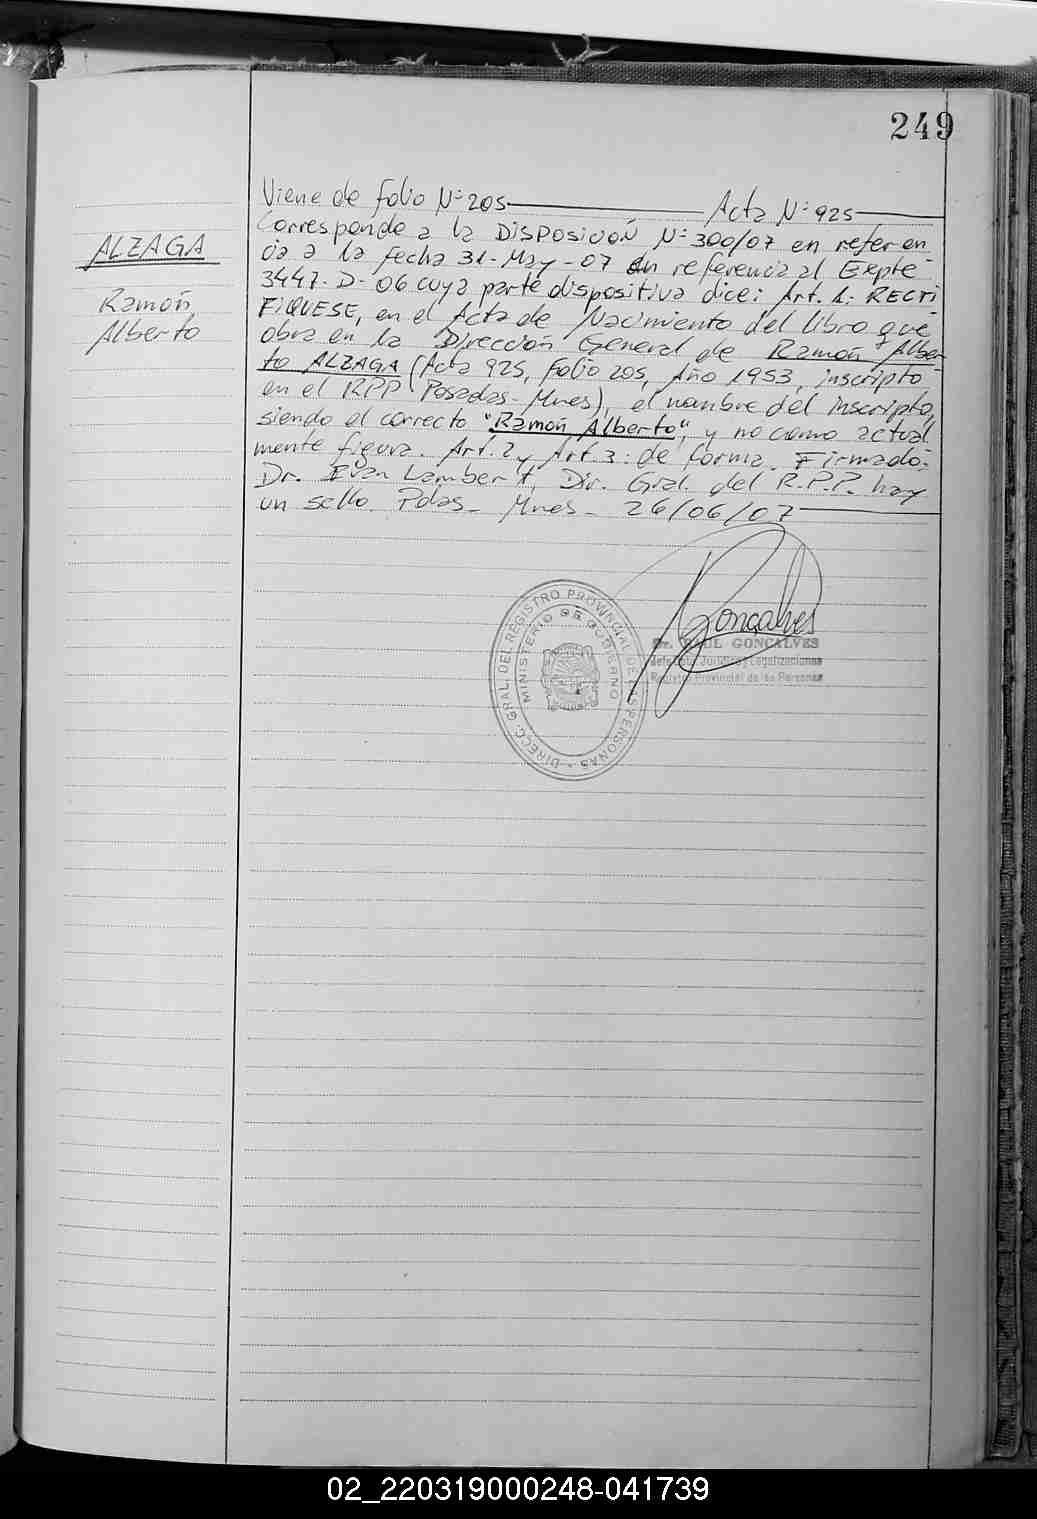 249
Viene de folio Nº 205 Acta Nº 925
ALZAGA
Ramón
Alberto
Corresponde a la DISPOSICIÓN Nº 300/07 en referen
cia a la fecha 31-May-07 en referencia al Expte
3447-D-06 cuya parte dispositiva dice: Art. 1: RECTI
FIQUESE, en el Acta de Nacimiento del libro que
obra en la Dirección General de Ramón Alber
to ALZAGA (Acta 925, Folio 205, Año 1953, inscripto
en el RPP Posadas-Mnes), el nombre del inscripto,
siendo el correcto "Ramón Alberto", y no como actual
mente figura. Art. 2 y Art. 3: de forma. Firmado:
Dr. Evan Lambert, Dir. Gral. del R.P.P. hay
un sello. Pdas- Mnes- 26/06/07
Gonçalves
Dr. RAUL GONCALVES
Jurídico y Legalizaciones
Registro Provincial de las Personas
DIRECC. GRAL. DEL REGISTRO PROVINCIAL DE LAS PERSONAS
MINISTERIO DE GOBIERNO
02_220319000248-041739